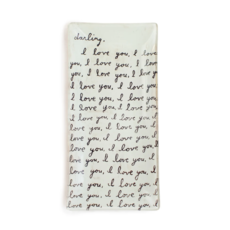 darling,
I love you, I love
you, I love you, I love
you, I love you, I love you,
I love you, I love you,
I love you, I love you,
I love you, I love you,
I love you, I love you,
I love you, I love you, I
love you, I love you, I
love you, I love you, I
love you, I love you, I
love you, I love you, I
love you, I love you, I
love you, I love you, I